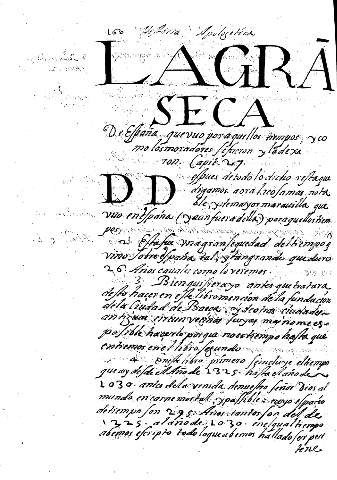 160 Historia Apologetica
LAGRĀ
SECA
De España. que vuo por aquellos tiempos, y co
mo los moradores se fueron y la dexa
ron. Capit. 27.
DD espues de todo lo dicho resta que
digamos aora la cosa mas nota
ble, y de mayor marauilla que
vuo en españa (y aun fuera della) por aquellos tiem
pos.
2. Esta fue una gran sequedad de tiempo q
vino sobre españa tal, y tan grande que duro
26. Años cauales como lo veremos.
3. Bien quisiera yo antes que tratara
desto hacer en este libro mencion de la fundacion
de la Ciudad de Baeça, y de otras ciudades
antiguas, circunvecinas suyas mas no me es
posible hacerlo porque no es tiempo hasta que
entremos en el libro segundo.
4. En este libro primero se incluye el tiempo
que ay desde el Año de 1325. hasta el año de
1030. antes de la venida de nuestro señor Dios al
mundo en carne mortal, y pasible: cuyo espacio
de tiempo son 295. Años. contar son del de
1325. al año de 1030. en el qual tiempo
abemos escripto todo lo que abemos hallado ser pert